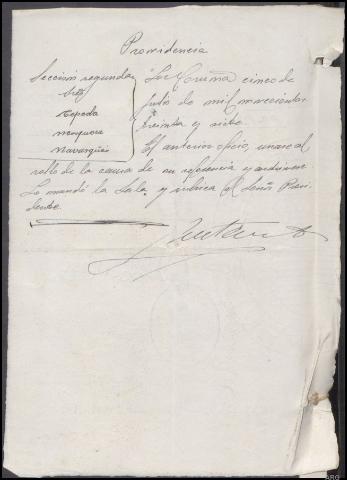 Providencia
Sección segunda
Srs
Cepeda
Mosquera
Navarqués
La Coruña cinco de
Julio de mil novecientos
treinta y siete.
El anterior oficio, unase al
rollo de la causa de su referencia y archivese
Lo mandó la Sala y rubrica el Señor Presi
dente